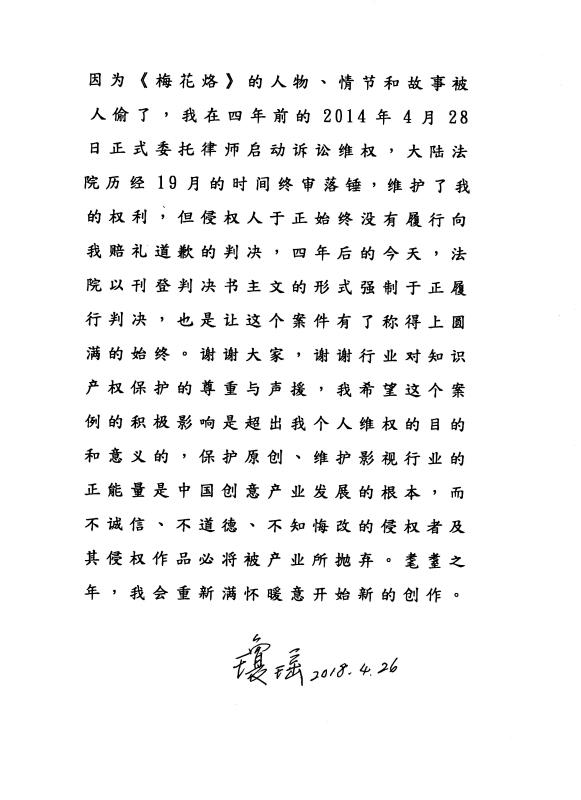 因为《梅花烙》的人物、情节和故事被
人偷了，我在四年前的2014年4月28
日正式委托律师启动诉讼维权，大陆法
院历经19月的时间终审落锤，维护了我
的权利，但侵权人于正始终没有履行向
我赔礼道歉的判决，四年后的今天，法
院以刊登判决书主文的形式强制于正履
行判决，也是让这个案件有了称得上圆
满的始终。谢谢大家，谢谢行业对知识
产权保护的尊重与声援，我希望这个案
例的积极影响是超出我个人维权的目的
和意义的，保护原创、维护影视行业的
正能量是中国创意产业发展的根本，而
不诚信、不道德、不知悔改的侵权者及
其侵权作品必将被产业所抛弃。耄耋之
年，我会重新满怀暖意开始新的创作。
瓊瑶 2018.4.26